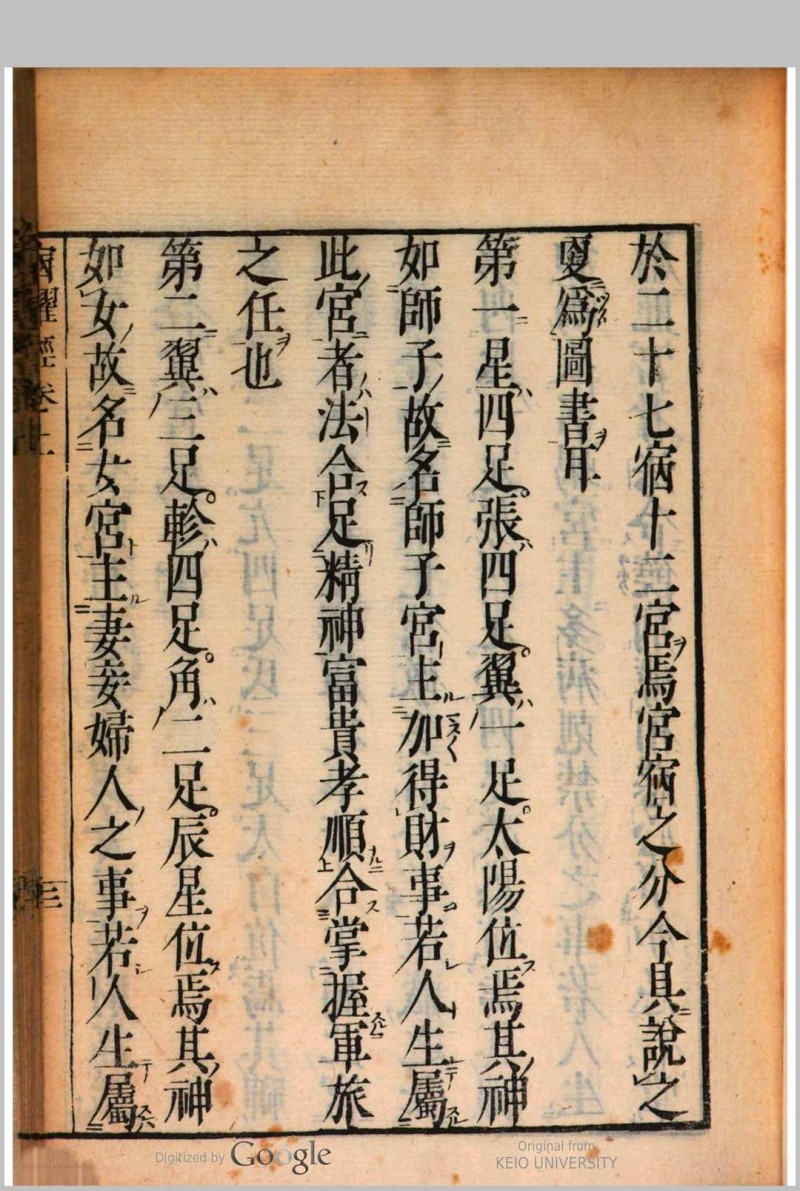 於二十七宿十二宮焉宮宿之分今具說之
更爲圖書耳
第一星四足張四足翼一足太陽位焉其神
如師子故名師子宮主加得財事若人生屬
此宮者法合足精神富貴孝順合掌握軍旅
之任也
第二翼三足軫四足角二足辰星位焉其神
如女故名女宮主妻妾婦人之事若人生屬
宿曜經卷上
三
Digitized by Google
Original from
KEIO UNIVERSITY